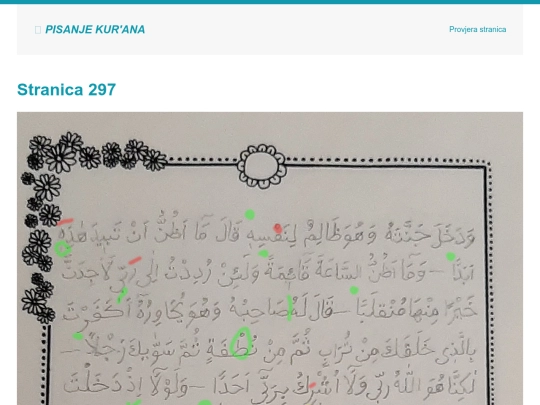 PISANJE KUR'ANA
Provjera stranica
Stranica 297
وَدَخَلَ جَنَّتَهُ وَهُوَ ظَالِمٌ لِنَفْسِهِ قَالَ مَا أَظُنُّ أَنْ تَبِيدَ هٰذِهِ
أَبَدًا وَمَا أَظُنُّ السَّاعَةَ قَائِمَةً وَلَئِنْ رُدِدْتُ إِلَى رَبِّي لَأَجِدَنَّ
خَيْرًا مِنْهَا مُنْقَلَبًا قَالَ لَهُ صَاحِبُهُ وَهُوَ يُحَاوِرُهُ أَكَفَرْتَ
بِالَّذِي خَلَقَكَ مِنْ تُرَابٍ ثُمَّ مِنْ نُطْفَةٍ ثُمَّ سَوّٰيكَ رَجُلًا
لٰكِنَّا هُوَ اللّٰهُ رَبِّي وَلَا أُشْرِكُ بِرَبِّي أَحَدًا وَلَوْلَا إِذْ دَخَلْتَ